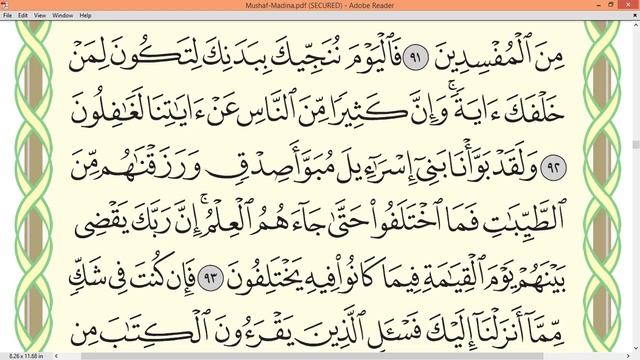 Mushaf-Madina.pdf (SECURED) - Adobe Reader
File Edit View Window Help
مِنَ ٱلْمُفْسِدِينَ ٩١ فَٱلْيَوْمَ نُنَجِّيكَ بِبَدَنِكَ لِتَكُونَ لِمَنْ
خَلْفَكَ ءَايَةً ۚ وَإِنَّ كَثِيرًا مِّنَ ٱلنَّاسِ عَنْ ءَايَٰتِنَا لَغَٰفِلُونَ
٩٢ وَلَقَدْ بَوَّأْنَا بَنِىٓ إِسْرَٰٓءِيلَ مُبَوَّأَ صِدْقٍ وَرَزَقْنَٰهُم مِّنَ
ٱلطَّيِّبَٰتِ فَمَا ٱخْتَلَفُوا۟ حَتَّىٰ جَآءَهُمُ ٱلْعِلْمُ ۚ إِنَّ رَبَّكَ يَقْضِى
بَيْنَهُمْ يَوْمَ ٱلْقِيَٰمَةِ فِيمَا كَانُوا۟ فِيهِ يَخْتَلِفُونَ ٩٣ فَإِن كُنتَ فِى شَكٍّ
مِّمَّآ أَنزَلْنَآ إِلَيْكَ فَسْـَٔلِ ٱلَّذِينَ يَقْرَءُونَ ٱلْكِتَٰبَ مِن
8.26 x 11.68 in